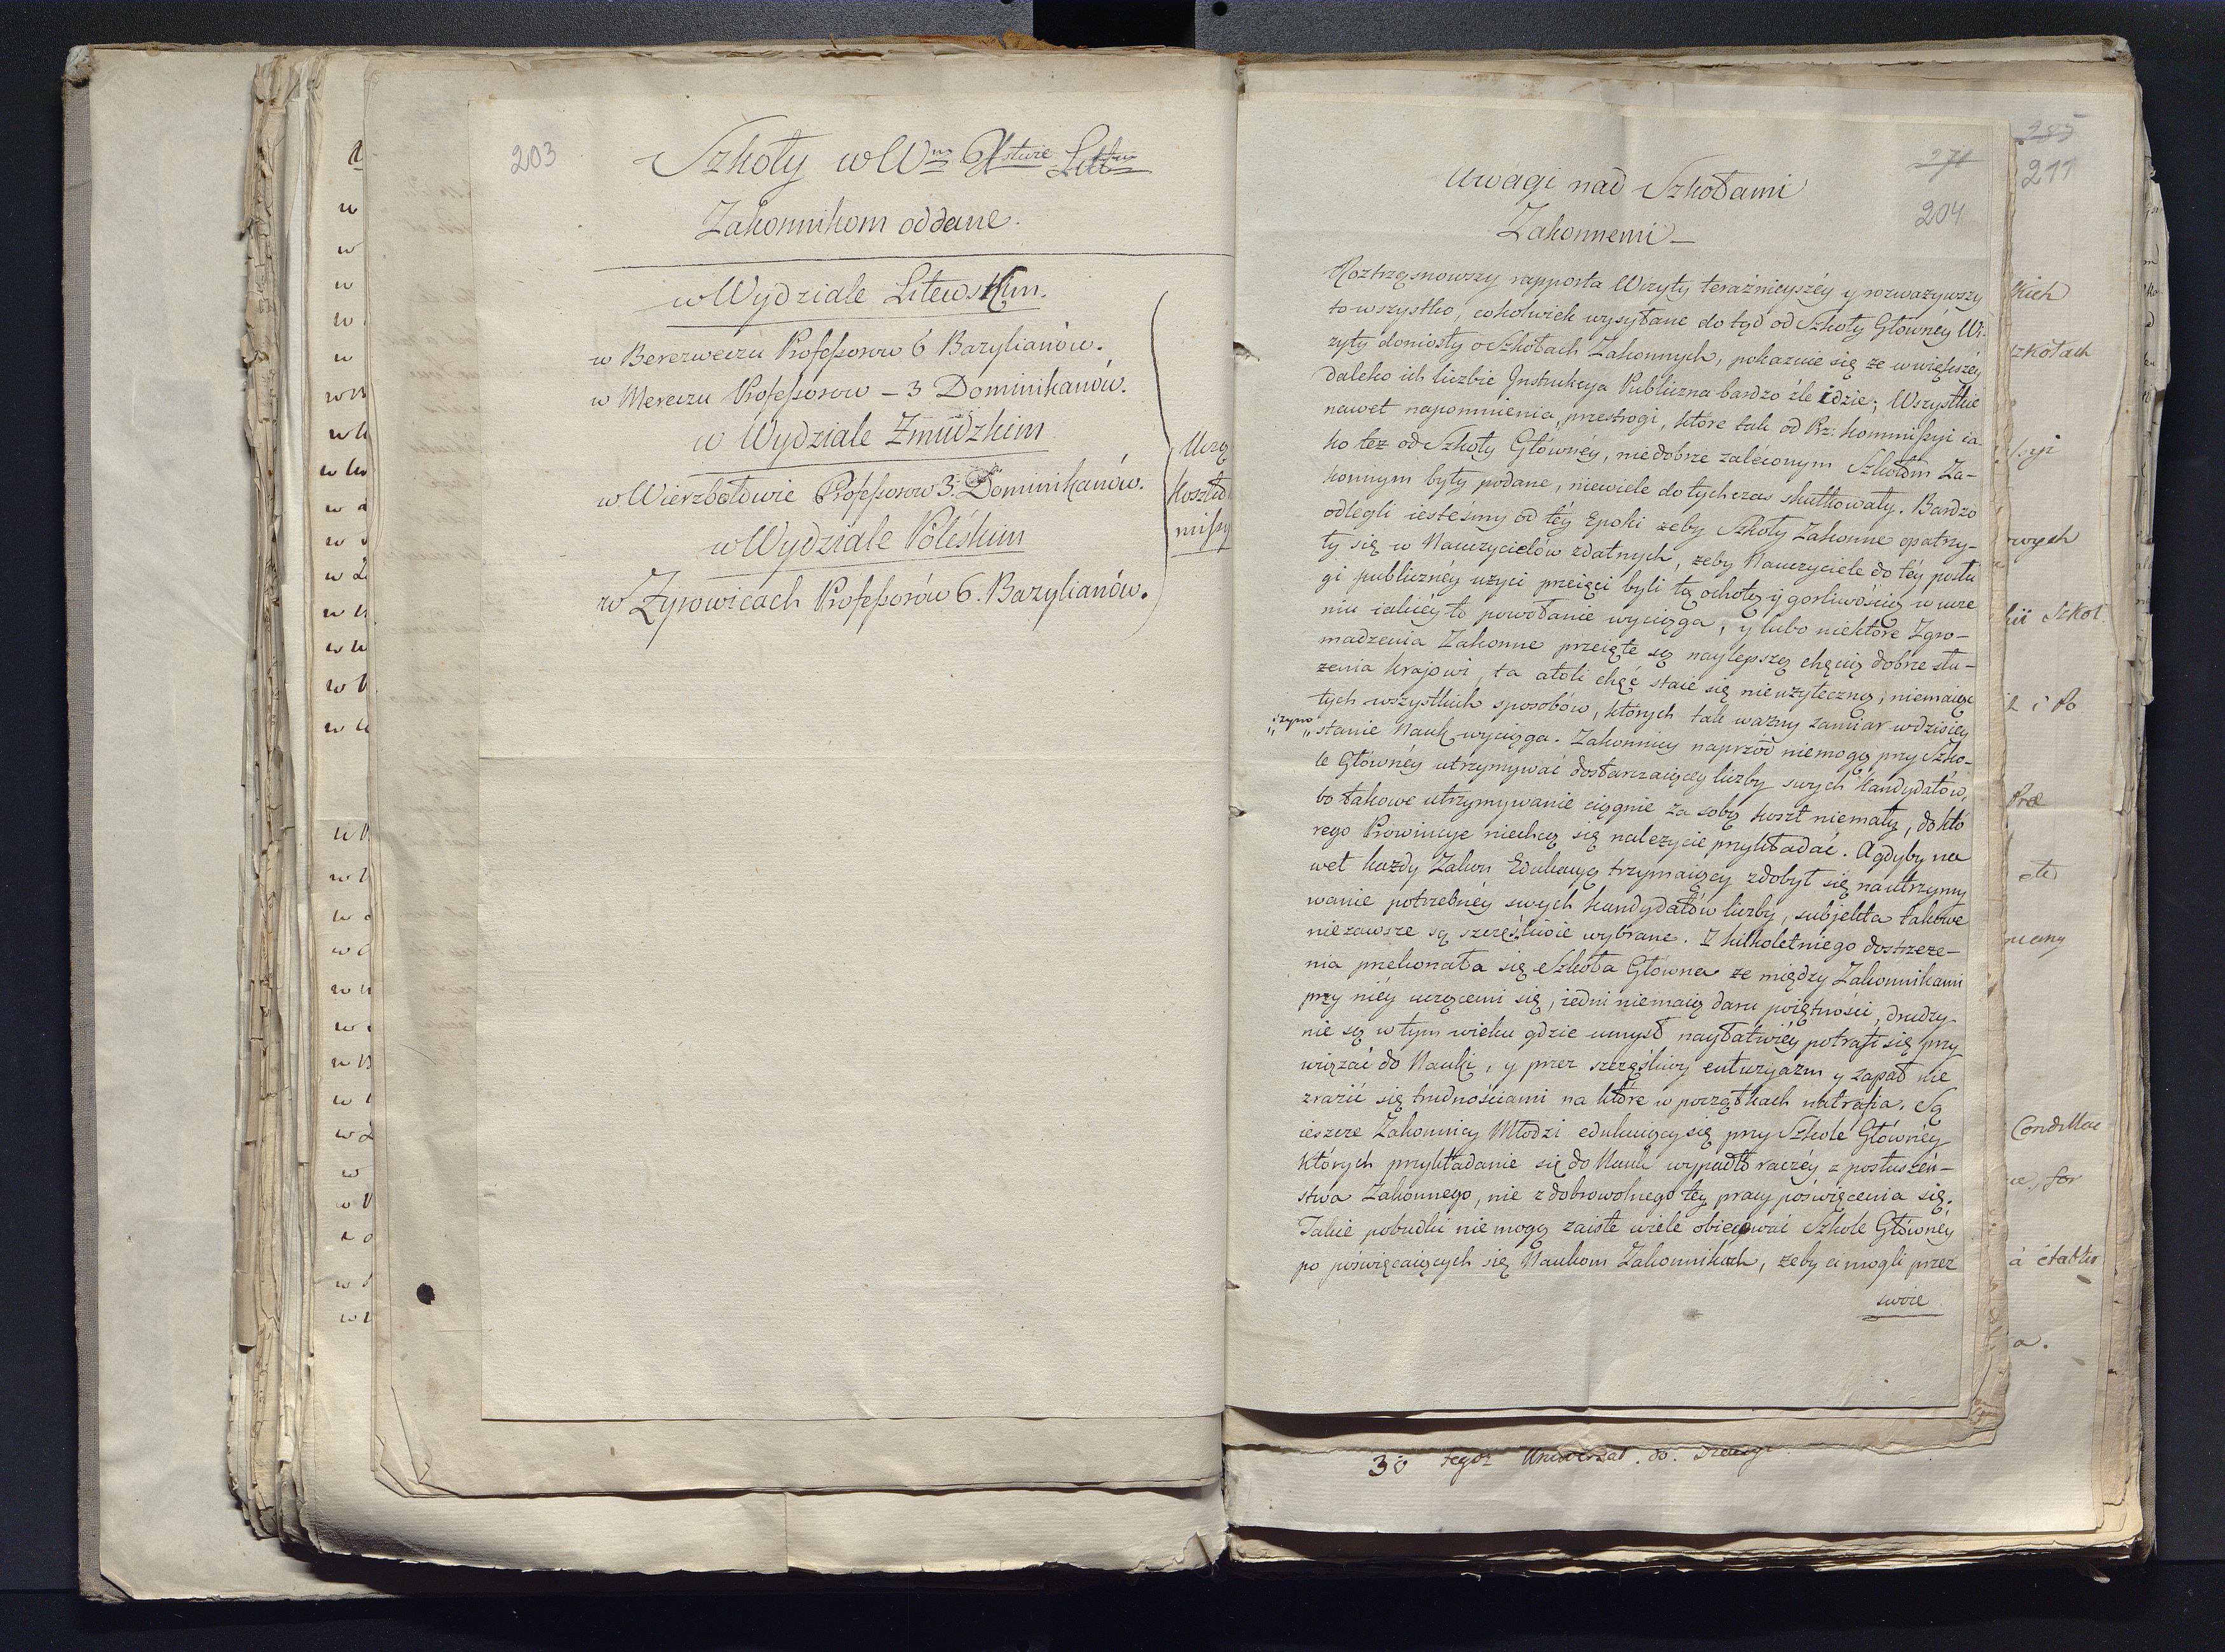 203
Szkoły w W^m X^stwie Litt^m
Zakonnikom oddane.
w Wydziale Litewskim.
w Berezweczu Professorow 6 Bazylianów.
w Mereczu Professorow – 3 Dominikanów.
w Wydziale Zmudzkim
w Wierzbołowie Professorow 3. Dominikanów.
w Wydziale Poleskim
w Zyrowicach Professorów 6. Bazylianów.
Uczą
kosztẽ
missy
270
204
Uwagi nad Szkołami
Zakonnemi –
Roztrząsnowszy rapporta Wizyty teraznieyszéy y rozwazywszy
to wszystko, cokolwiek wysyłane do tąd od Szkoły Głownéy Wi-
zyty doniosły o Szkołach Zakonnych, pokazuie się ze w większéy
daleko ich liczbie Jnstrukcya Publiczna bardzo źle idzie; Wszystkie
nawet napomnienia, przestrogi, które tak od Prz: Kommissyi ia
ko tez od Szkoły Głównéy, niedobrze zaleconym Szkołom Za-
konnym były podane, niewiele dotychczas skutkowały. Bardzo
odlegli iesteśmy od téy Epoki zeby Szkoły Zakonne opatrzy-
ły się w Nauczycielów zdatnych, zeby Nauczyciele do téy posłu
gi publicznéy uzyci przeięci byli tą ochotą y gorliwością w ucze
niu iakiéy to powołanie wyciąga, y lubo niektóre Zgro-
madzenia Zakonne przeięte są naylepszą chęcią dobrze słu-
zenia krajowi, ta atoli chęć staie się nieuzyteczną, niemaiąc
tych wszystkich sposobów, których tak wazny zamiar w dzisiey
„szym „stanie Nauk wyciąga. Zakonnicy naprzód niemogą przy Szko-
le Głównéy utrzymywać dostarczaiącéy liczby swych kandydatów,
bo takowe utrzymywanie ciągnie za sobą koszt niemały, do któ
rego Prowincye niechcą się nalezycie przykładać. A gdyby na
wet kazdy Zakon Edukacyą trzymaiący zdobył się na utrzymy
wanie potrzebnéy swych kandydatów liczby, subjekta takowe
niezawsze są szczęśliwie wybrane. Z kilkoletniego dostrzeze-
nia przekonała się Szkoła Główna ze między Zakonnikami
przy niéy uczącemi się, iedni niemaią daru poiętności, drudzy
nie są w tym wieku gdzie umysł nayłatwiéy potrafi się przy
wiązać do Nauki, y przez szczęśliwy entuzyazm y zapał nie
zrazić się trudnościami na które w początkach natrafia. Są
ieszcze Zakonnicy Młodzi edukuiący się przy Szkole Głównéy
których przykładanie się do Nauk wypadło raczéy z posłuszeń-
stwa Zakonnego, nie z dobrowolnego téy pracy poświęcenia się.
Takie pobudki nie mogą zaiste wiele obiecywać Szkole Głównéy
po poświęcaiących się Naukom Zakonnikach, zeby ci mogli przez
swoie
285
211
kich
szkołach
owych
Szkoł.
i Po
Præ
Condillac
à établir
a.
30 tegoż Uniwersał. do.